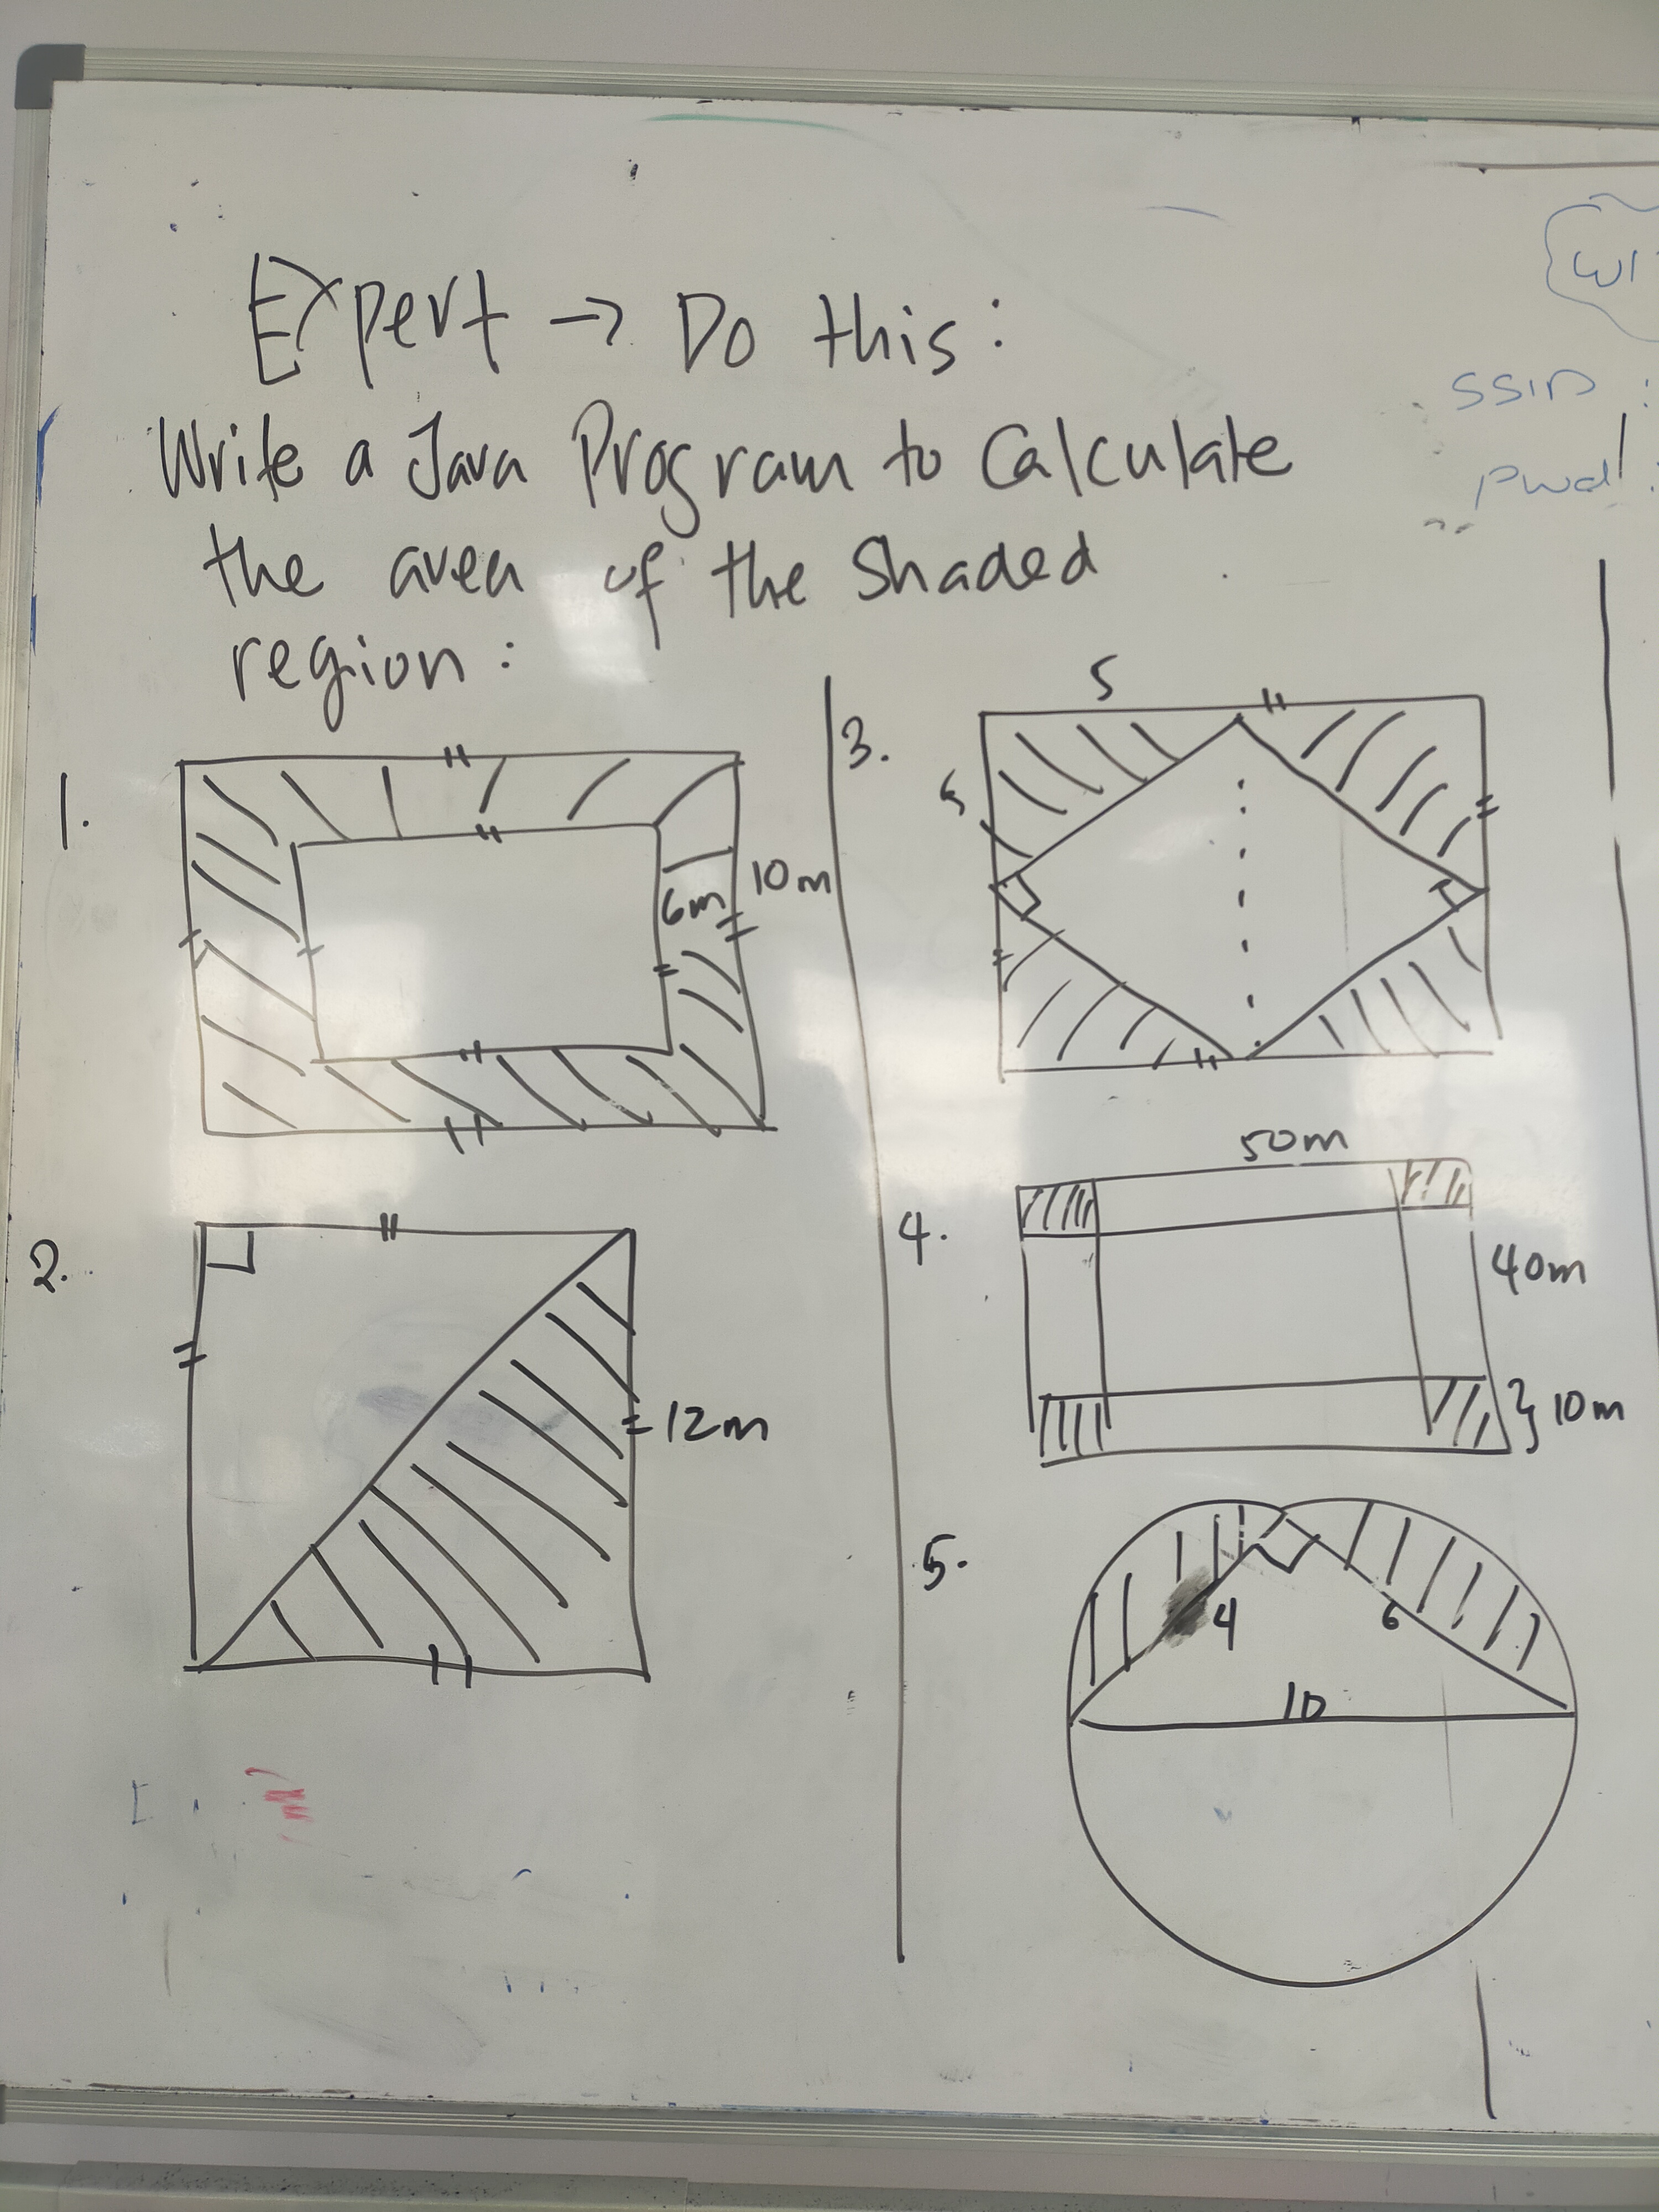 Expert → Do this:
Write a Java Program to Calculate
the area of the Shaded
region:
1.
10m
6m
2.
12m
3.
5
5
4.
50m
40m
10m
5.
4
6
10
SSID :
pwd :